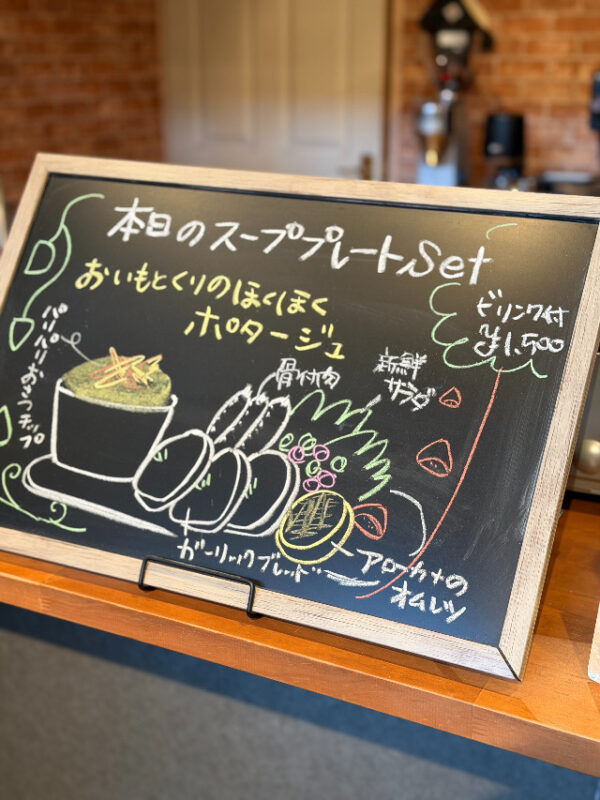 本日のスーププレートSet
おいもとくりのほくほく
ポタージュ
ドリンク付
¥1,500
パリパリおさつチップ
骨付肉
新鮮
サラダ
ガーリックブレッド
アローカナの
オムレツ